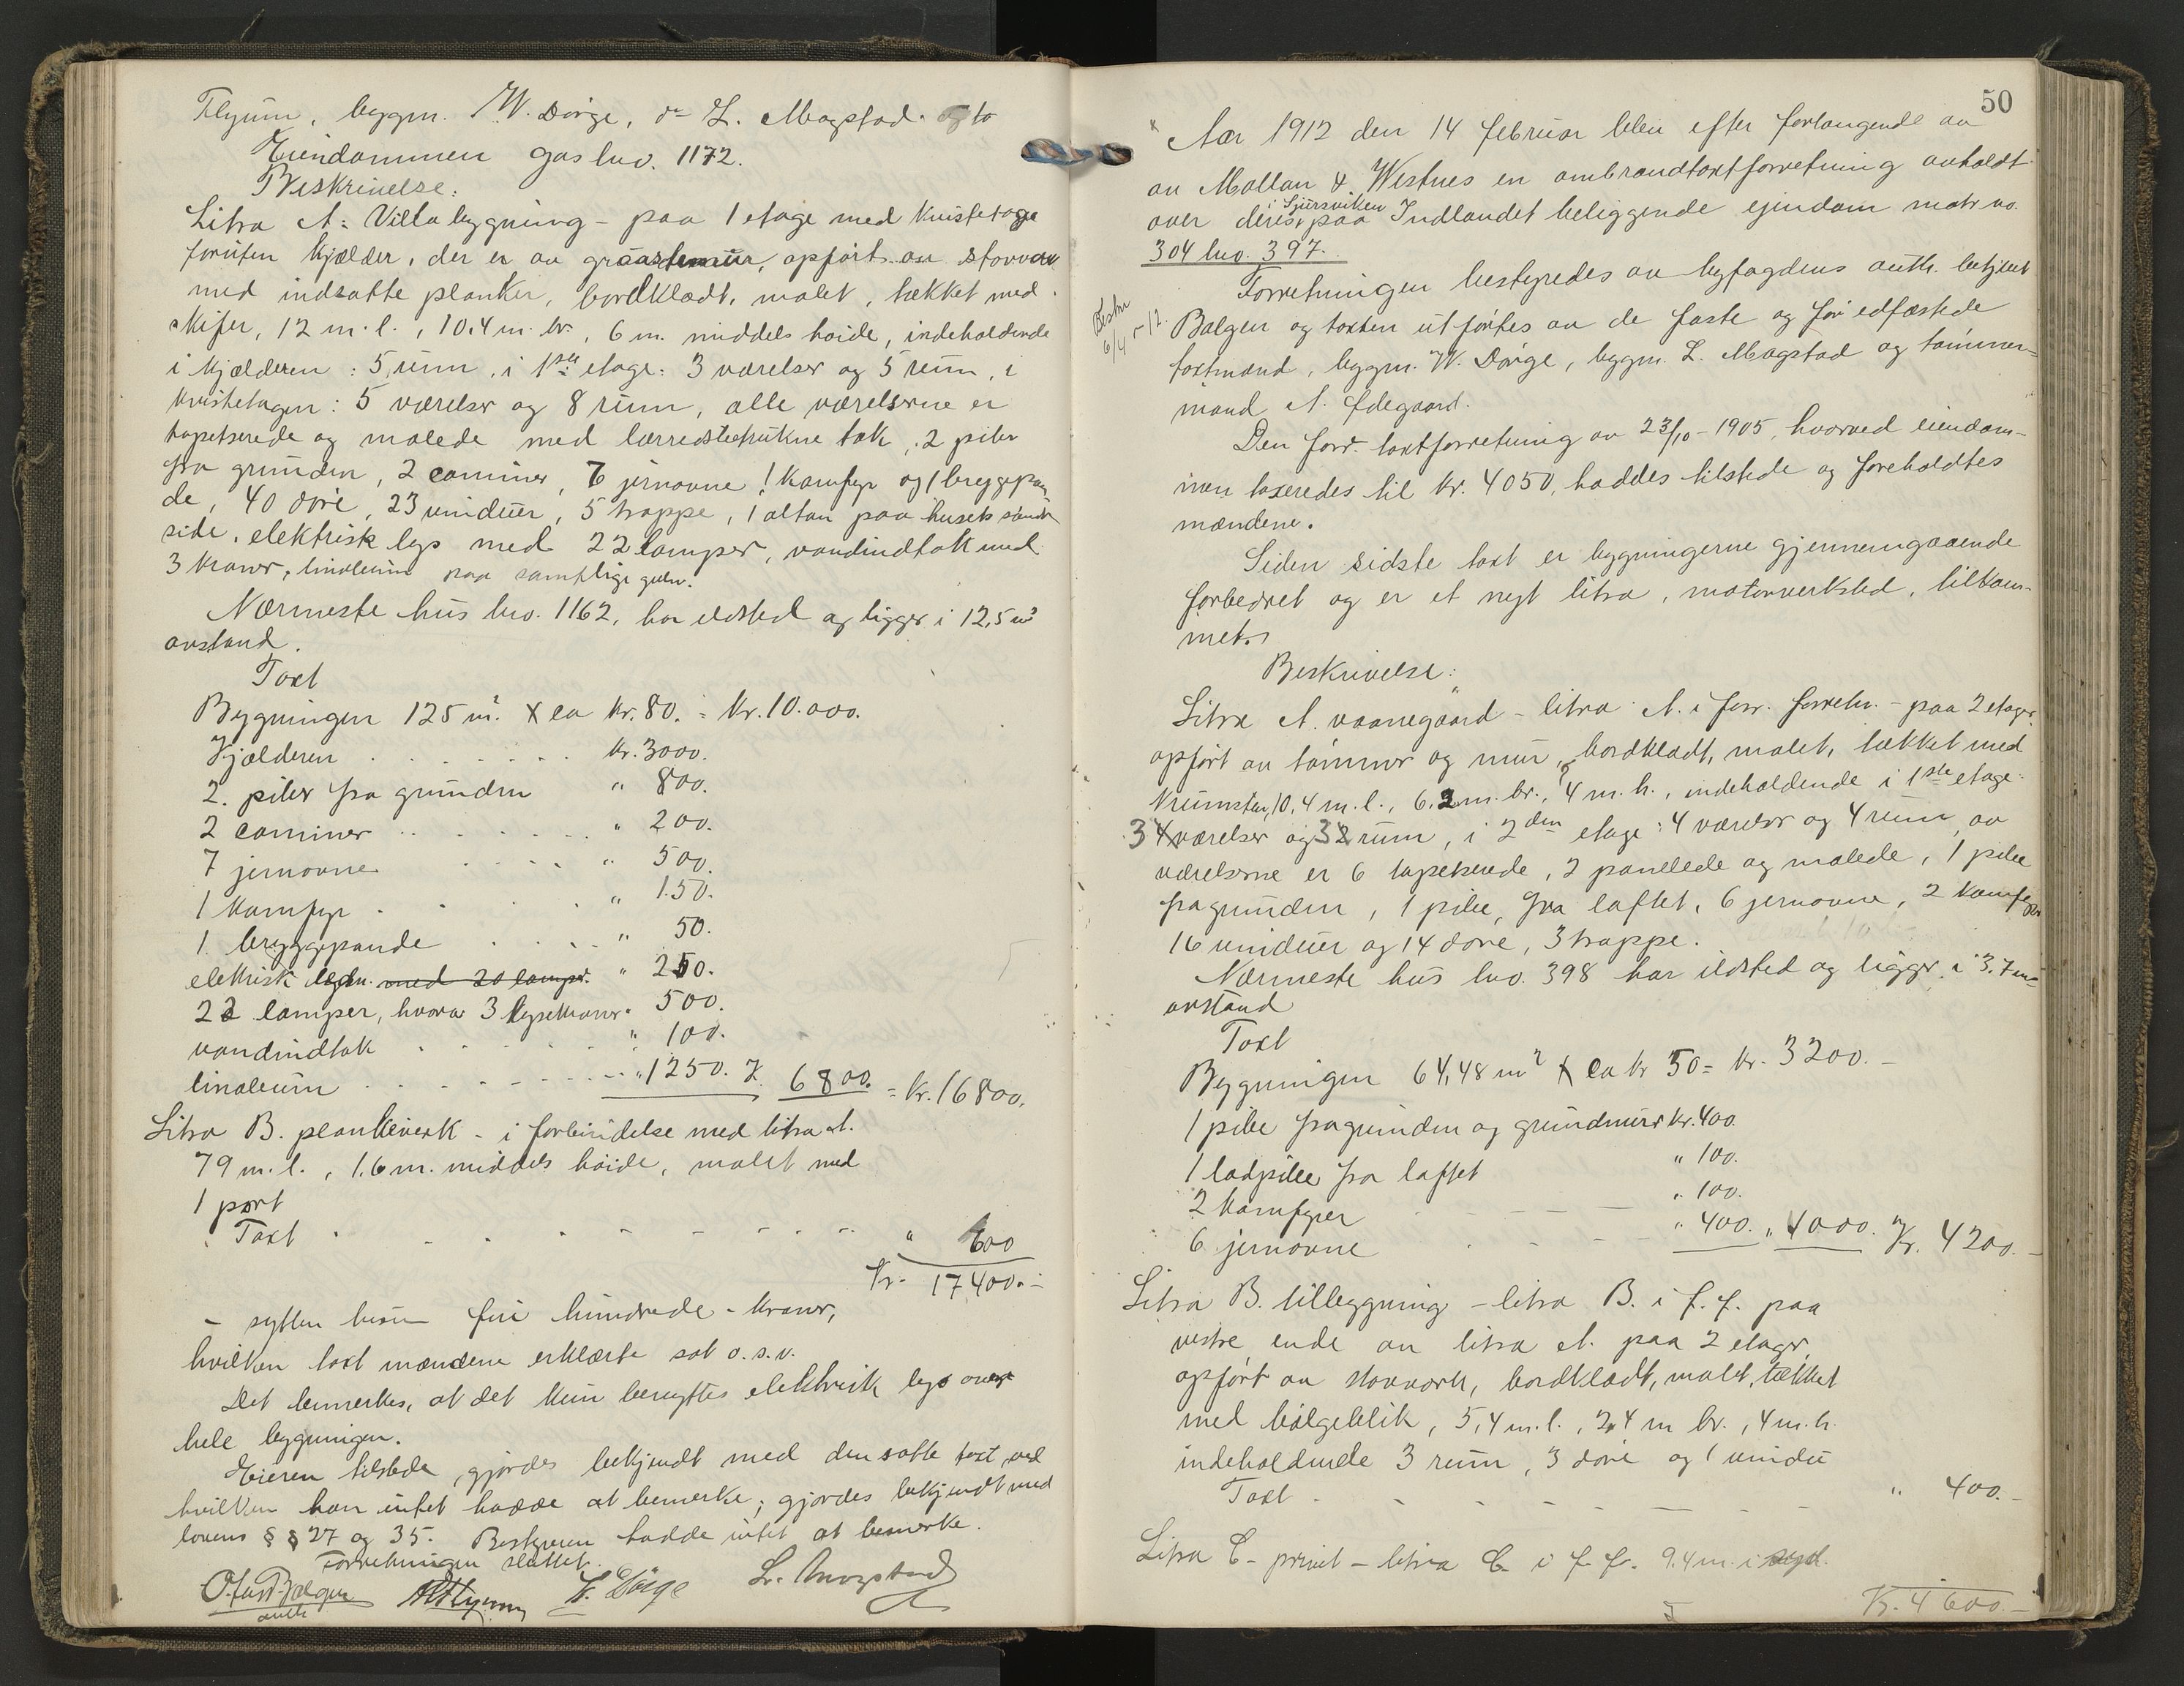 Flyum, byggm. W. Dørge, do L. Magstad og to
Eiendommen gas bno. 1172.
Beskrivelse:
Litra A: Villabygning - paa 1 etage med kvistetage
foruten kjælder, der er av graastensmur, opført av stavverk
med indsatte planker, bordklædt, malet, tækket med
skifer, 12 m. l., 10,4 m. br., 6 m. middels høide, indeholdende
i kjælderen: 5 rum, i 1ste etage: 3 værelser og 5 rum, i
kvistetagen: 5 værelser og 8 rum, alle værelserne er
tapetserede og malede med lærredsbetrukne tak, 2 piber
fra grunden, 2 caminer, 7 jernovne, 1 komfyr og 1 bryggepan
de, 40 døre, 23 vinduer, 5 trappe, 1 altan paa husets søndre
side, elektrisk lys med 22 lamper, vandindtak med
3 kraner, linoleum paa samtlige gulv.
Nærmeste hus bno. 1162, har ildsted og ligger i 12,5 m's
avstand.
Taxt
Bygningen 125 m². x ca kr. 80. = kr. 10.000.
Kjælderen . . . . . . . kr. 3000.
2. piber fra grunden " 800.
2 caminer . . . . . . . " 200.
7 jernovne . . . . " 500.
1 komfyr . . . . " 150.
1. bryggepande . . . . " 50.
elektrisk lysin. med 20 lamper. " 250.
22 lamper, hvorav 3 lysekroner " 500.
vandindtak . . . . . " 100.
linoleum . . . . . . . . " 1250. 6800. = kr. 16800.
Litra B. plankeverk - i forbindelse med litra A.
79 m. l., 1.6 m. middels høide, malet med
1 port
Taxt . . . . . . . . . " 600
Kr. 17400.-
- sytten tusen fire hundrede - kroner,
hvilken taxt mændene erklærte sat o. s. v.
Det bemerkes, at det kun benyttes elektrisk lys over
hele bygningen.
Eieren tilstede, gjordes bekjendt med den satte taxt, ved
hvilken han intet hadde at bemerke; gjordes bekjendt med
lovens § § 27 og 35. Bestyreren hadde intet at bemerke.
Forretningen sluttet.
Balgen
auth
W. Dørge L. Magstad
50
x Aar 1912 den 14 februar blev efter forlangende av
av Mallan & Westnes en ombrandtaxtforretning avholdt
over deres i Sjursviken paa Indlandet beliggende ejendom matr no.
304 bno. 397.
Forretningen bestyredes av byfogdens auth. betjent
Bestr
6/4 - 12.
Balgen og taxten utførtes av de faste og før edfæstede
taxtmænd, byggm. W. Dørge, byggm. L. Magstad og tømmer-
mand A. Ødegaard.
Den forr. taxtforretning av 23/10 - 1905, hvorved eiendom-
men taxeredes til kr. 4050, haddes tilstede og foreholdtes
mændene.
Siden sidste taxt er bygningerne gjennemgaaende
forbedret og er et nyt litra, motorverksted, tilkom-
met.
Beskrivelse:
Litra A. vaanegaard - litra A. i forr. forretn. - paa 2 etager,
opført av tømmer og mur, bordklædt, malet, tækket med
krumsten, 10,4 m. l., 6.2 m. br., 4 m. h., indeholdende i 1ste etage:
3 4 værelser og 3 2 rum, i 2den etage: 4 værelser og 4 rum, av
værelserne er 6 tapetserede, 2 panelede og malede, 1 pibe
fra grunden, 1 pibe, fra loftet, 6 jernovne, 2 komfyrer
16 vinduer og 14 døre, 3 trappe.
Nærmeste hus bno. 398 har ildsted og ligger i 3.7 m's
avstand
Taxt
Bygningen 64,48 m² x ca kr 50 = kr. 3200.-
1 pibe fra grunden og grundmur kr. 400.
1 ladpibe fra loftet " 100.
2 komfyrer - - - - " 100.
6 jernovne . . . - - " 400. " 1000. Kr. 4200.-
Litra B. tilbygning - litra B. i f. f. paa
vestre ende av litra A. paa 2 etager,
opført av stavverk, bordklædt, malet, tækket
med bølgeblik, 5,4 m. l., 2,4 m br., 4 m. h.
indeholdende 3 rum, 3 døre og 1 vindu
Taxt . - - - - - - - " 400.-
Litra C - privet - litra C i f. f. 9.4 m. i syd.
Kr. 4600.-